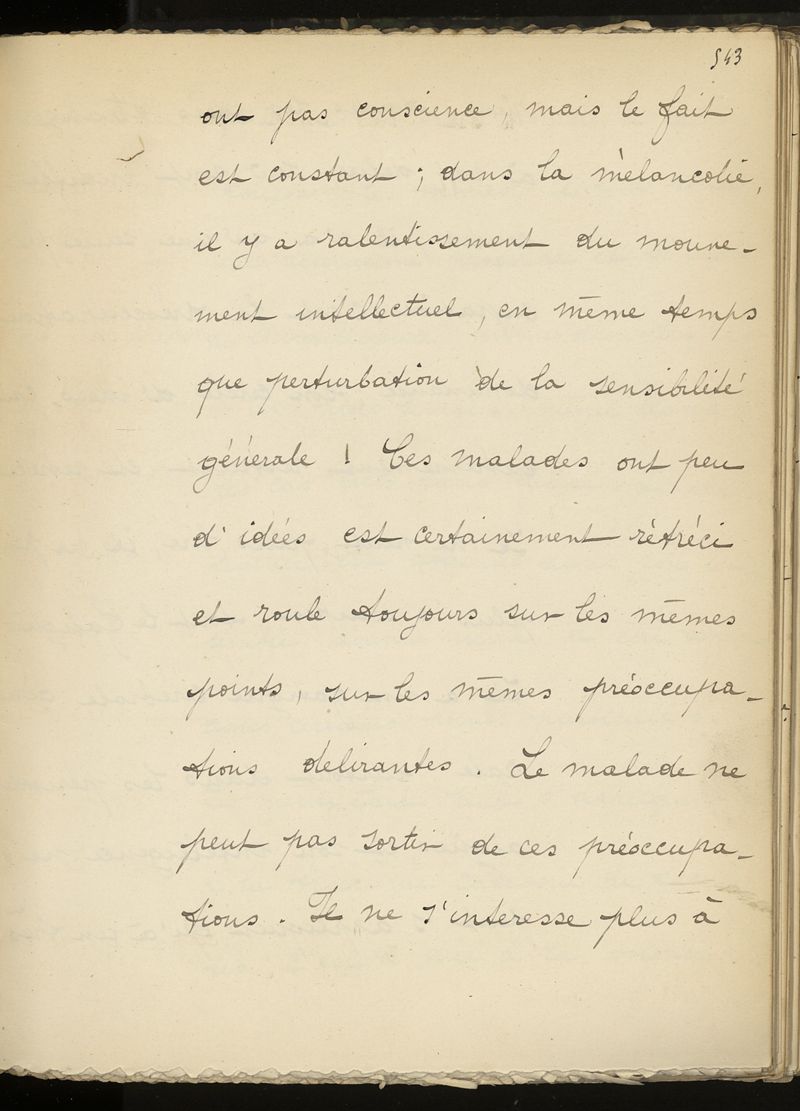 543
ont pas conscience, mais le fait
est constant ; dans la mélancolie,
il y a ralentissement du mouve-
ment intellectuel, en même temps
que perturbation de la sensibilité
générale ! Ces malades ont peu
d'idées est certainement rétréci
et roule toujours sur les mêmes
points, sur les mêmes préoccupa-
tions délirantes. Le malade ne
peut pas sortir de ces préoccupa-
tions. Il ne s'interesse plus à